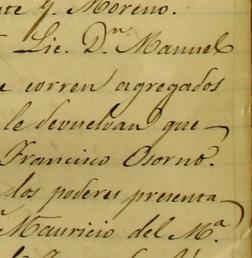 nte y. Moreno.
Lic. Dn. Manuel
e corren agregados
le devuelvan que
Francisco Osorno.
los poderes presenta
Mauricio del Ma.